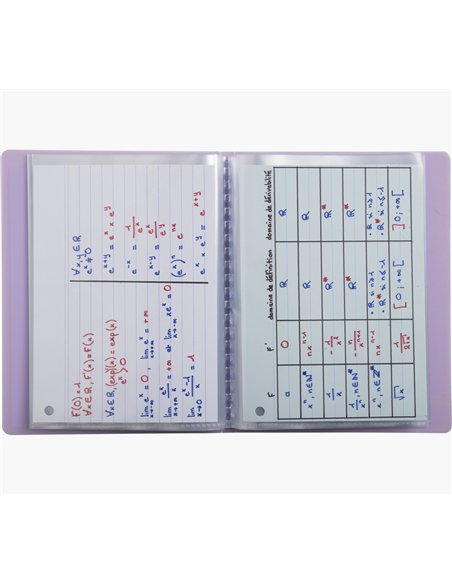 F(0)=1
∀x∈ℝ, F'(x)=F(x)
∀x∈ℝ, (exp)'(x) = exp(x)
eˣ>0
lim x→-∞ eˣ = 0, lim x→+∞ eˣ = +∞
lim x→+∞ eˣ/x = +∞ et lim x→-∞ xeˣ = 0
lim x→0 (eˣ-1)/x = 1
∀x,y∈ℝ
eˣ≠0
e^(x+y) = eˣ × e^y
e^(-x) = 1/eˣ
e^(x-y) = eˣ/e^y
(eˣ)ⁿ = e^(nx)
eˣ × e^y = e^(x+y)
F F' domaine de définition domaine de dérivabilité
a 0 ℝ ℝ
xⁿ, n∈ℕ* nxⁿ⁻¹ ℝ ℝ
1/x -1/x² ℝ* ℝ*
1/xⁿ, n∈ℕ* -n/xⁿ⁺¹ ℝ* ℝ*
xⁿ, n∈ℤ* nxⁿ⁻¹ • ℝ si n≥1 • ℝ si n≥1
• ℝ* si n≤-1 • ℝ* si n≤-1
√x 1/(2√x) [0;+∞[ ]0;+∞[